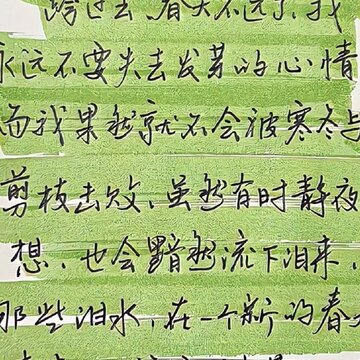 跨过去,春天不远了,我
永远不要失去发芽的心情
而我果然就不会被寒冬与
剪枝击败,虽然有时静夜
想,也会黯然流下泪来,
那些泪水,在一个新的春